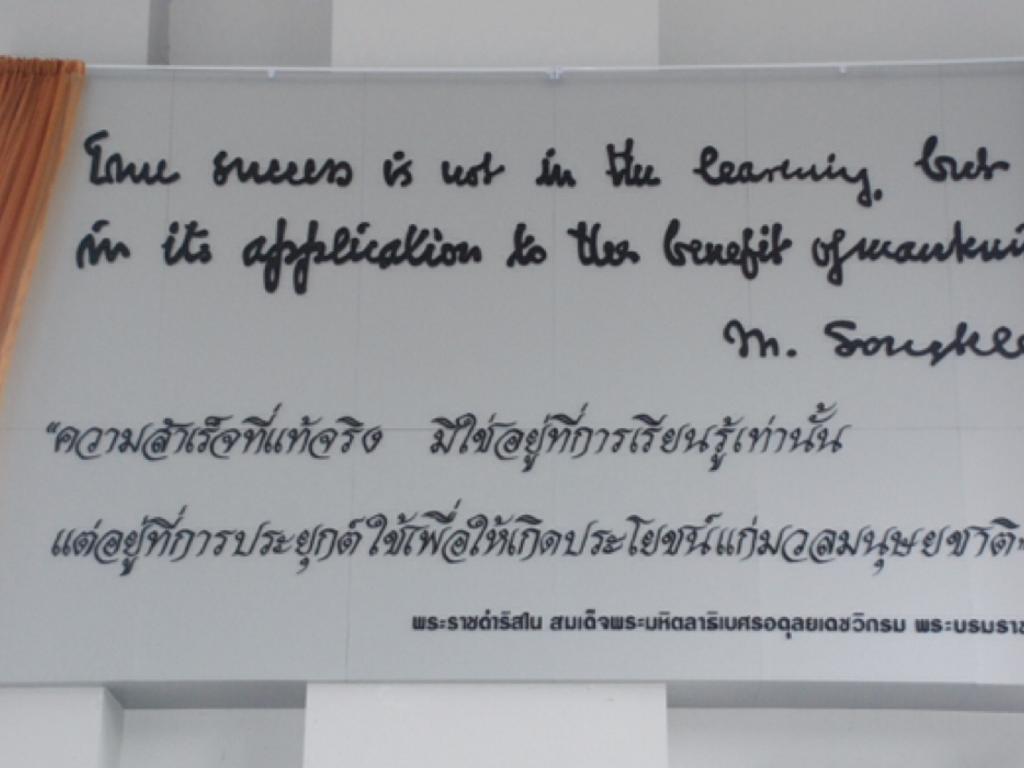 True success is not in the learning, but
in its application to the benefit of mankin
M. Songkla
"ความสำเร็จที่แท้จริง มิใช่อยู่ที่การเรียนรู้เท่านั้น
แต่อยู่ที่การประยุกต์ใช้เพื่อให้เกิดประโยชน์แก่มวลมนุษยชาติ"
พระราชดำริสใน สมเด็จพระมหิตลาธิเบศรอดุลยเดชวิกรม พระบรมราช